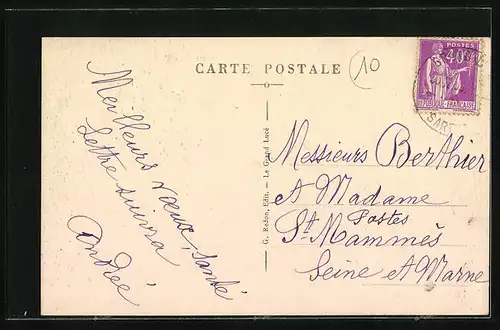 CARTE POSTALE
10
POSTES
40c
RÉPUBLIQUE FRANÇAISE
SARTHE
Meilleurs vœux, santé
Lettre suivra
Andrée
G. Bodon, Edit. - Le Grand Lucé
Messieurs Berthier
et Madame
Postes
St. Mammès
Seine et Marne